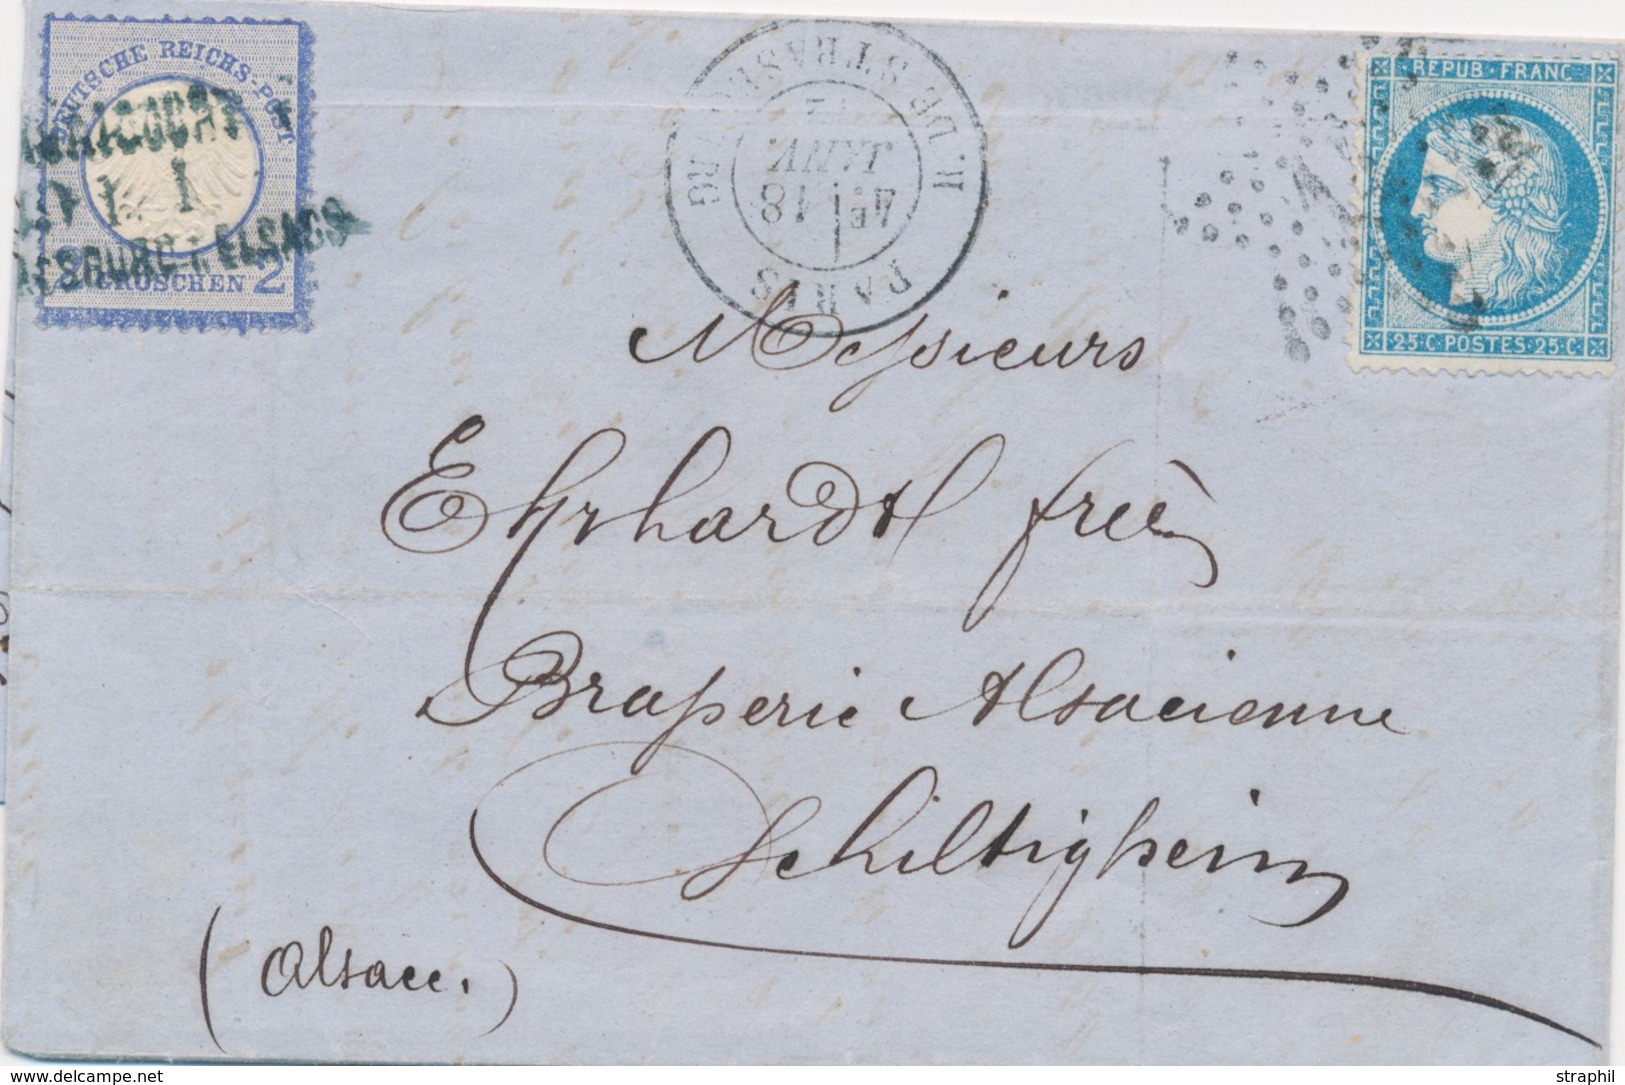 DEUTSCHE REICHS-POST
2 GROSCHEN 2
PARIS
R. DE STRASBOURG
4E 18
JANV.
72
REPUB·FRANC
25·C·POSTES·25·C
Messieurs
Ehrhardt frères
Braperie Alsacienne
Schiltigheim
(Alsace.)
www.delcampe.net
straphil